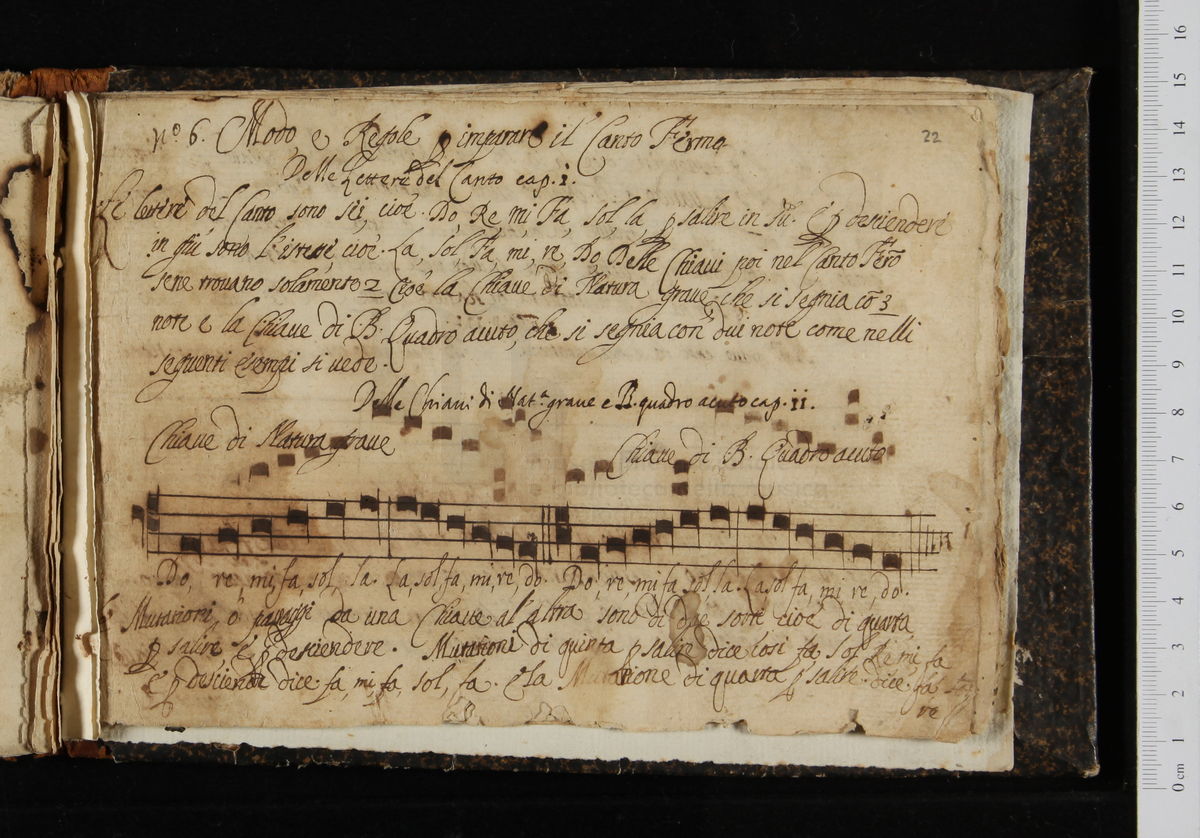 22
N.º 6. Modo, e Regole p imparare il Canto Fermo
Delle Lettere del Canto cap. I.
Le lettere del Canto sono sei, cioè. Do, Re, mi, Fa, sol, la, p salire in sù. E p desciendere
in giù sono l'istesse cioè. La, sol, Fa, mi, re, Do, Delle Chiaui poi nel Canto Fer̃o
sene trouano solamente 2 Cioè la Chiaue di Natura graue, che si segnia cõ 3
note e la Chiaue di B. Quadro acuto, che si segnia con due note come nelli
seguenti esempi si uede.
Delle Chiaui di Nat.ª graue e B. quadro acuto cap. II.
Chiaue di Natura graue
Chiaue di B. Quadro acuto
Do, re, mi, fa, sol, la. La, sol, fa, mi, re, do. Do, re, mi, fa, sol, la. La, sol, fa, mi, re, do.
Mutationi, ò passaggi da una Chiaue al'altra sono di due sorte cioè di quarta
p salire e p desciendere. Mutationi di quinta p salire dice così fa sol Re mi fa
e p desciende dice fa, mi, fa, sol, fa. E la Mutatione di quarta p salire. dice. fa
re